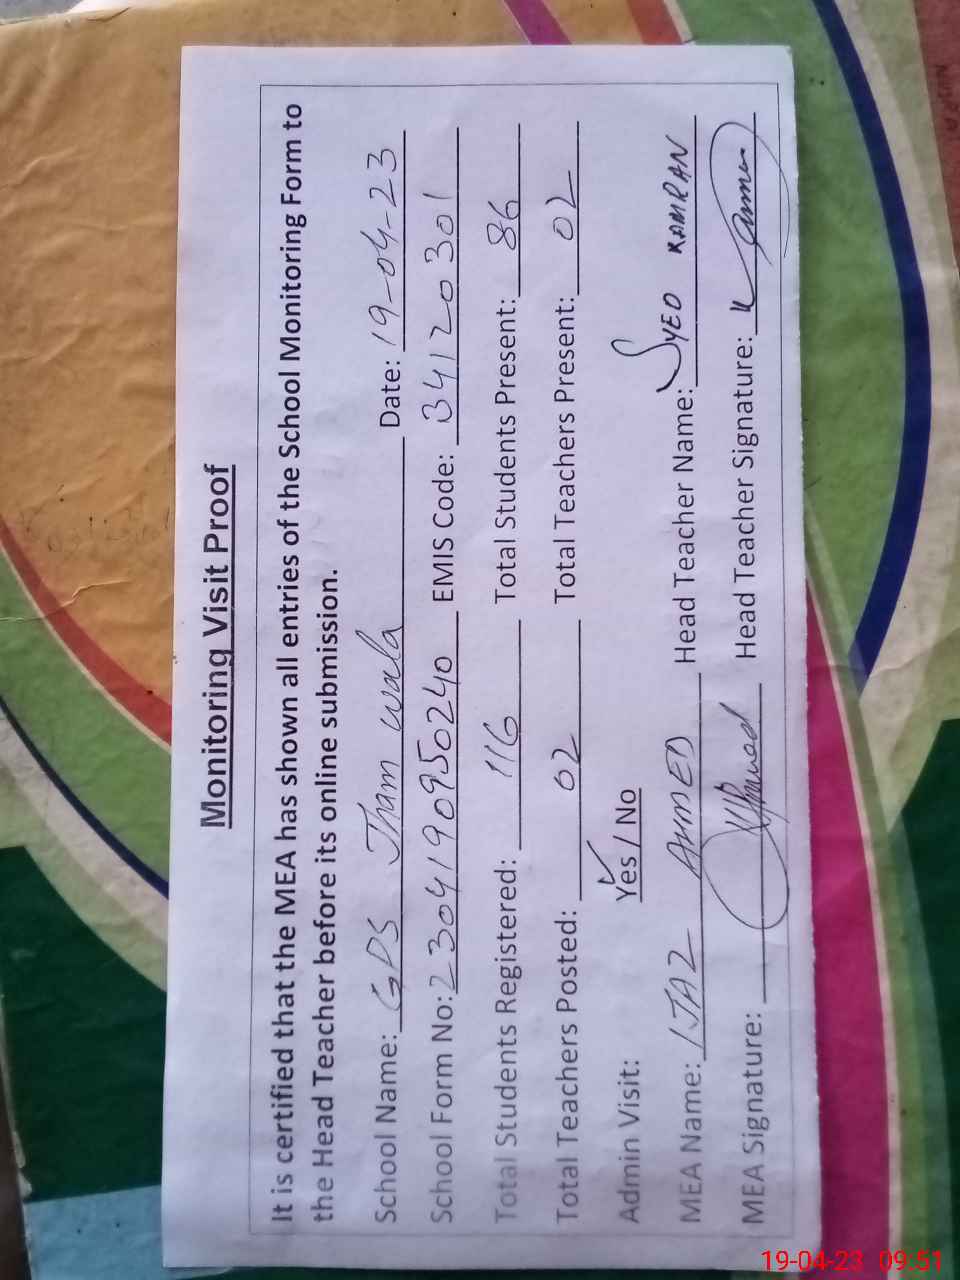 Monitoring Visit Proof
It is certified that the MEA has shown all entries of the School Monitoring Form to
the Head Teacher before its online submission.
School Name: GPS Tham wala Date: 19-04-23
School Form No: 2304190950240 EMIS Code: 34120301
Total Students Registered: 116 Total Students Present: 86
Total Teachers Posted: 02 Total Teachers Present: 02
Admin Visit: Yes / No
MEA Name: IJAZ AHMED Head Teacher Name: SYED KAMRAN
MEA Signature: Ahmed Head Teacher Signature:
19-04-23 09:51